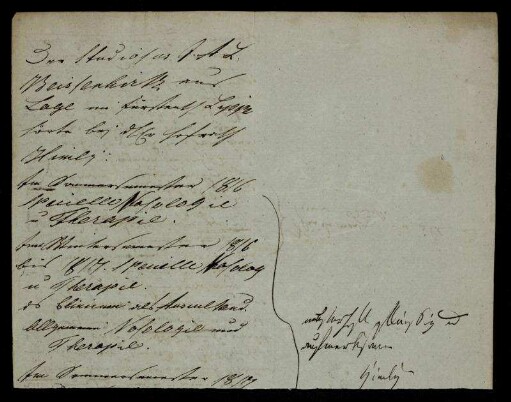 Der Studiosus
Weissenkirk aus
Lage im Fürstenth. Lippe
hörte bei dHEr Hofrath
Himly:
Im Sommersemester 1816
Specielle Nosologie
u Therapie.
Im Wintersemester 1816
bis 1817. Specielle Nosolog
u Therapie.
das Clinicum als Auscultand.
Allgemeine Nosologie und
Therapie.
Im Sommersemester 1817
fleissig u
aufmerksam
Himly